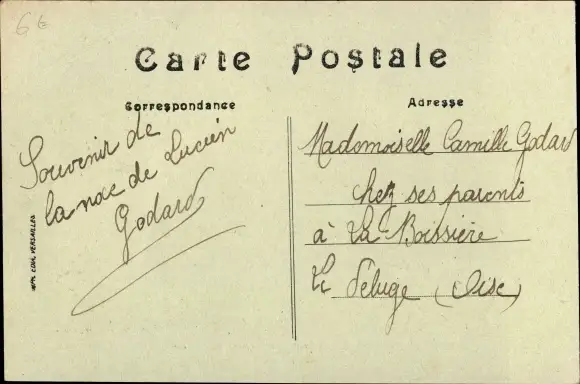 6 €
Carte Postale
Correspondance
Adresse
Souvenir de
la noce de Lucien
Godard
Mademoiselle Camille Godard
chez ses parents
à La Boissière
Le Déluge (Oise)